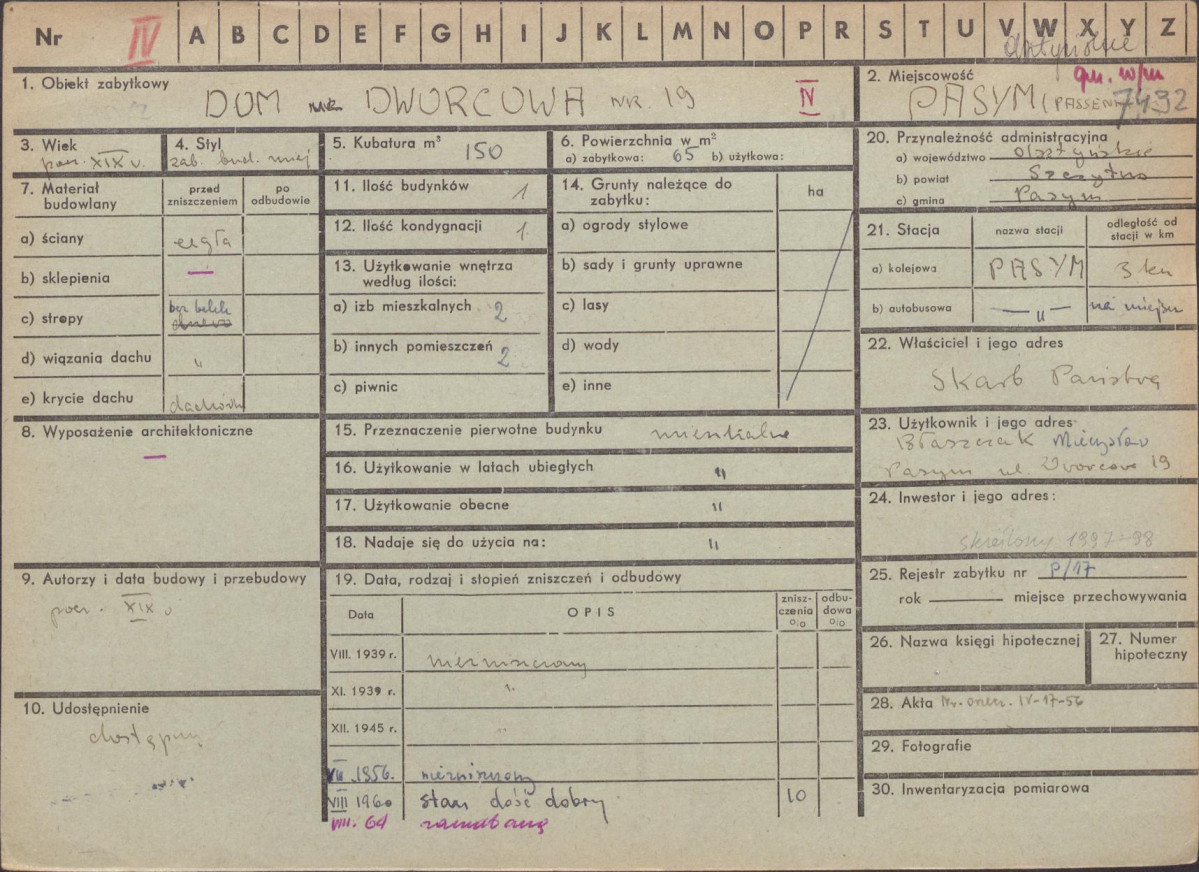 Nr IV A B C D E F G H I J K L M N O P R S T U V W X Y Z
1. Obiekt zabytkowy
DOM DWORCOWA NR. 19 IV
2. Miejscowość
PASYM (PASSEN 7492
3. Wiek
pocz. XIX w.
4. Styl
zab. bud. miej
5. Kubatura m³ 150
6. Powierzchnia w m²
a) zabytkowa: 65 b) użytkowa:
20. Przynależność administracyjna
a) województwo olsztyńskie
b) powiat Szczytno
c) gmina Pasym
7. Materiał budowlany
przed zniszczeniem
po odbudowie
a) ściany cegła
b) sklepienia —
c) stropy bez belek
d) wiązania dachu "
e) krycie dachu dachówk
11. Ilość budynków 1
12. Ilość kondygnacji 1
13. Użytkowanie wnętrza
według ilości:
a) izb mieszkalnych 2
b) innych pomieszczeń 2
c) piwnic
14. Grunty należące do
zabytku:
ha
a) ogrody stylowe
b) sady i grunty uprawne
c) lasy
d) wody
e) inne
21. Stacja
nazwa stacji
odległość od
stacji w km
a) kolejowa PASYM 3 km
b) autobusowa — " — na miejscu
22. Właściciel i jego adres
Skarb Państwa
8. Wyposażenie architektoniczne
—
15. Przeznaczenie pierwotne budynku mieszkalne
16. Użytkowanie w latach ubiegłych "
17. Użytkowanie obecne "
18. Nadaje się do użycia na: "
23. Użytkownik i jego adres
Błaszczak Mieczysław
Pasym ul. Dworcowa 19
24. Inwestor i jego adres:
skreślony 1997-98
9. Autorzy i data budowy i przebudowy
pocz. XIX w
19. Data, rodzaj i stopień zniszczeń i odbudowy
Data
OPIS
znisz-
czenia
%
odbu-
dowa
%
VIII. 1939 r. niezniszczony
XI. 1939 r. "
XII. 1945 r. "
VII. 1956. niezniszczony
VIII 1960 stan dość dobry 10
VIII. 64
25. Rejestr zabytku nr P/17
rok miejsce przechowywania
26. Nazwa księgi hipotecznej
27. Numer
hipoteczny
10. Udostępnienie
dostępny
28. Akta IV-17-56
29. Fotografie
30. Inwentaryzacja pomiarowa